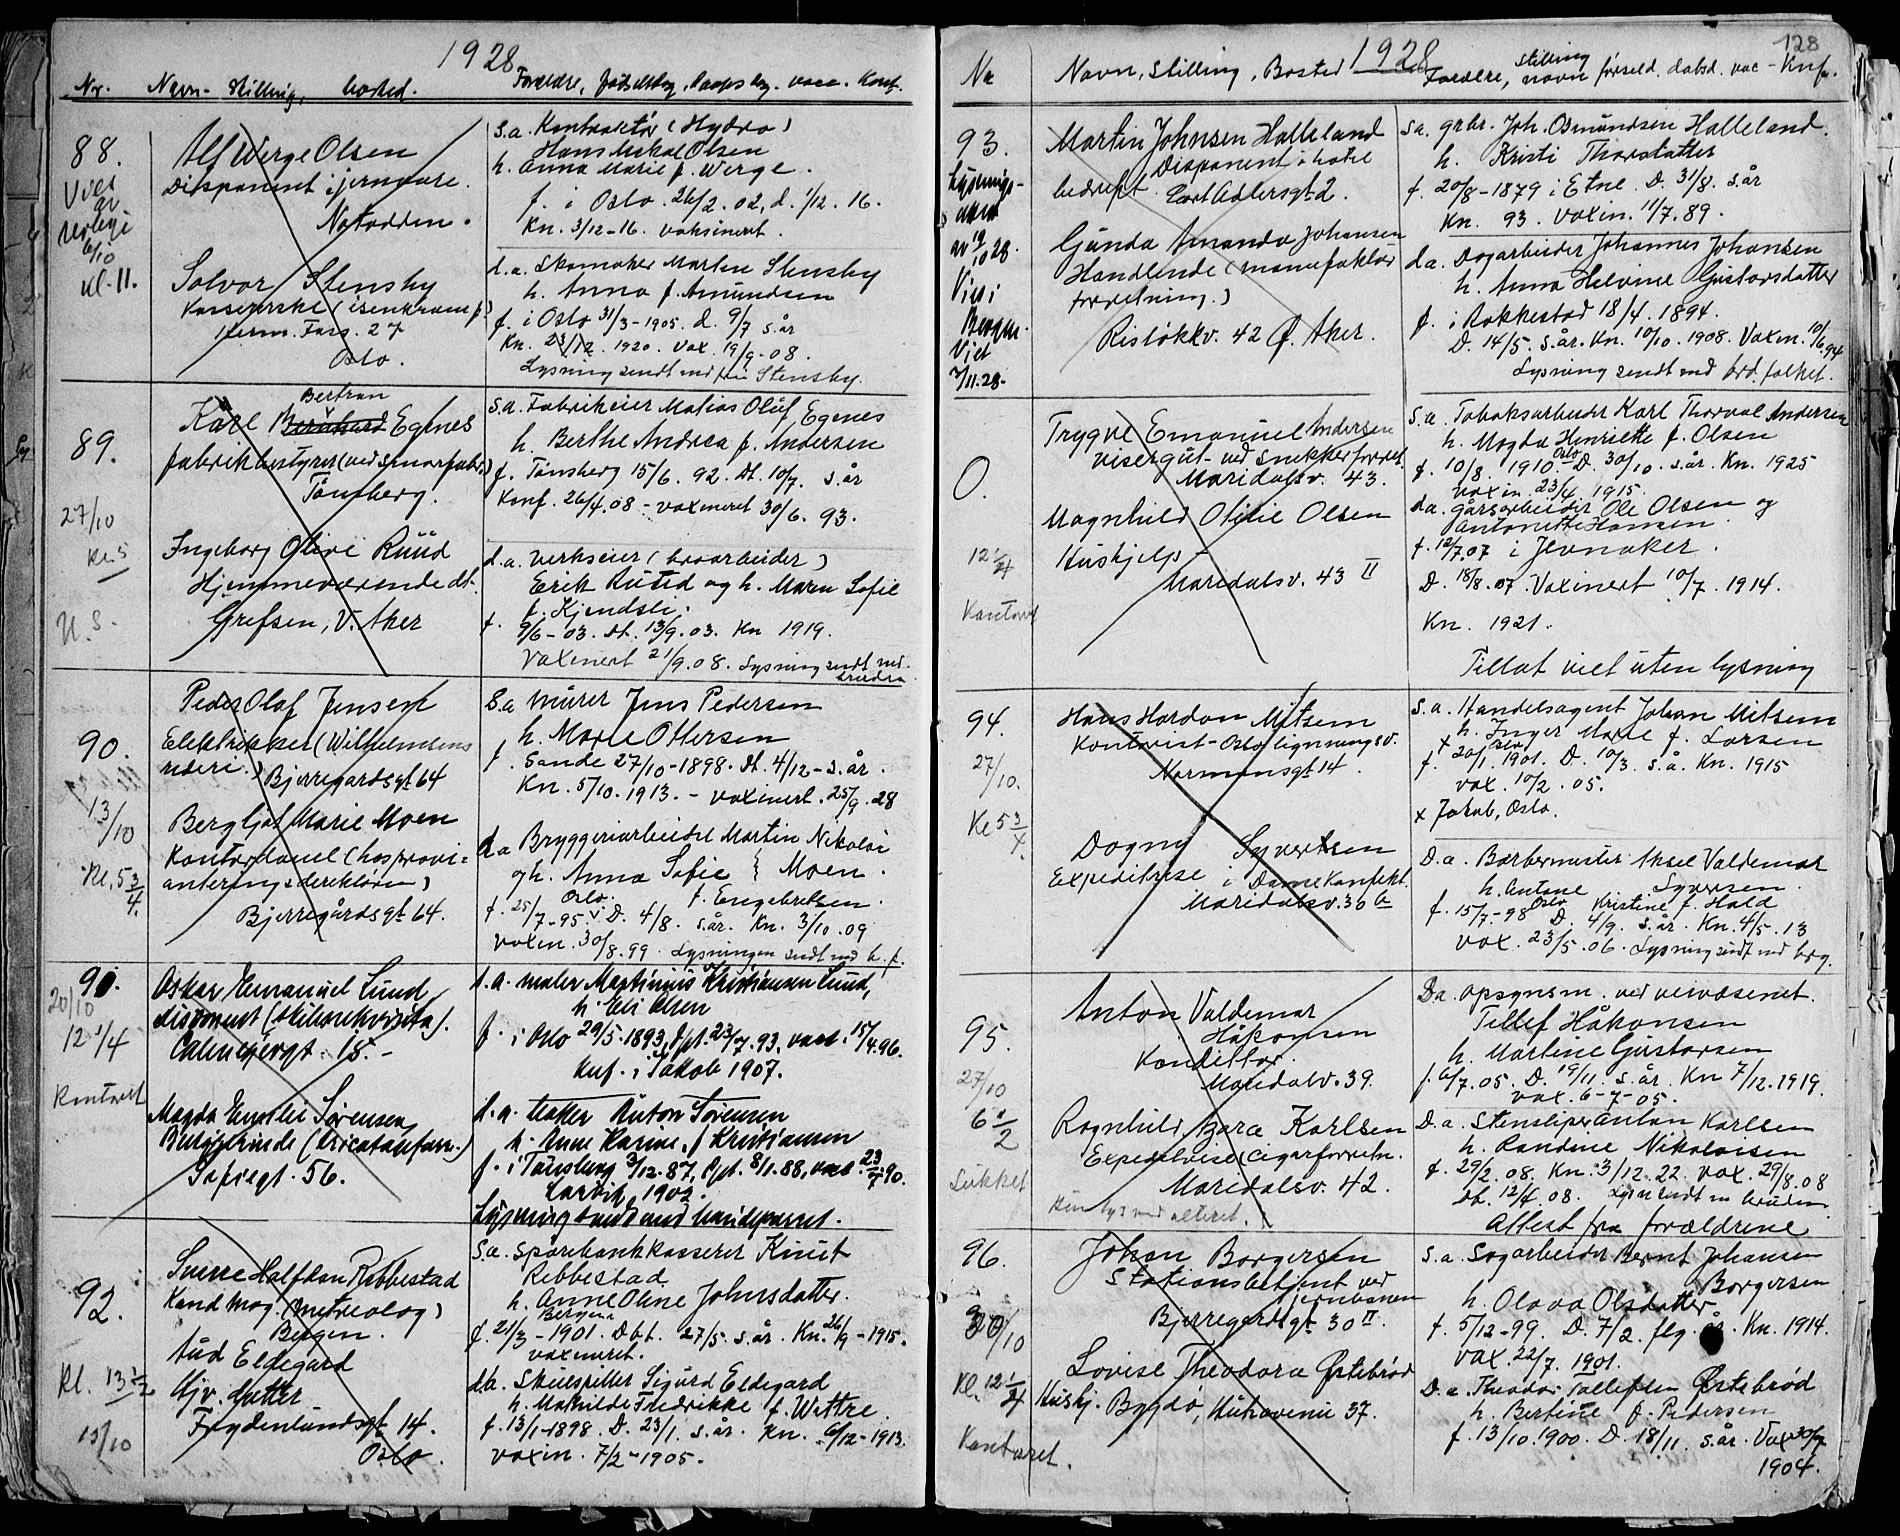 1928
Nr. Navn - stilling, bosted. Forældre, fødselsdag, daapsdag, vacc. Konf.
88. Alf Werge Olsen
Disponent i jernvare.
Notodden.
s.a. Kontraktör (Hydro)
Hans Olsen
h. Anna Marie f. Werge.
f. i Oslo 26/2.02, d. 1/12.16.
Kn. 3/12-16. vaksinert.
6/10
kl. 11.
Solvor Stensby
Kasererske (isenkramf)
Herm. Foss. 27
Oslo.
d.a. Skomaker Martin Stensby
h. Anna f. Amundsen
f. i Oslo 31/3-1905. D. 9/7 s.år
Kn. 1920. Vax. 19/9-08.
Lysning sendt med frk Stensby.
89.
Bertran
Karl Bernhard Egenes
fabrikbestyrer (ved Smørfabr.)
Tönsberg.
s.a. Fabrikeier Matias Oluf Egenes
h. Berthe Andrea f. Andersen
f. Tönsberg 15/6.92. Dt. 10/7. s.år
Konf. 26/4.08 - vaxineret 30/6.93.
27/10
kl. 5
U.S.
Ingeborg Olive Ruud
Hjemmeværende dt.
Grefsen, V. Aker
d.a. Verkseier (broarbeider)
Erik Ruud og h. Maren Sofie
f. Kjendsli.
f. 9/6-03. Dt. 13/9.03. Kn 1919.
Vaxinert 21/9.08. Lysning sendt md.
bruden
90.
Peder Olaf Jensen
Elektriker (Wilhelmsens
rideri.) Bjerregårdsgt 64
s.a. Murer Jens Pedersen
h. Marie Ottersen
f. Sande 27/10-1898. Dt. 4/12-s.år.
Kn. 5/10.1913. - vaxinert. 25/9.28
13/10
Kl. 5 3/4.
Bergljot Marie Moen
Kontordame (hos provi=
anteringsdirektören)
Bjerregårdsgt 64.
d.a. Bryggeriarbeider Martin Nikolai
og h. Anna Sofie } Moen.
Oslo. f. Engebretsen.
f. 25/7-95. D. 4/8. s.år. Kn. 3/10.09
Vaxin. 30/8.99. Lysningen sendt md b.f.
91.
20/10
12 1/4
Kontoret
Oskar Emanuel Lund
disponent
18. -
s.a. maler Martinius Kristiansen Lund,
h. Eli Olsen
f. i Oslo 29/5.1893, dpt. 23/7.93, vacc. 15/4.96.
Knf. i Jakob 1907.
Magda Emilie Sørensen
Sofiegt. 56.
d.a. Anton Sørensen
h. Anne Karine f. Kristiansen
f. i Tönsberg 3/12.87, dpt. 8/1.88, vacc. 23/7.90.
Larvik 1902.
Lysning sendt med brudeparret.
92.
Sverre Halfdan Rebbestad
Kand mag. (metreolog)
Bergen.
s.a. Sparebankkasserer Knut
Rebbestad
h. Anne Oline Johnsdatter.
Bergen
f. 21/3-1901. Dbt. 27/5. s.år. Kn. 26/9-1915.
vaxineret.
Kl. 13 1/2
13/10
Aud Eldegard
Hjv. datter
Frydenlundsgt 14.
Oslo.
d.a. Skuespiller Sigurd Eldegard
h. Mathilde Fredrikke f. Wittre.
f. 13/1-1898. D. 23/1. s.år. Kn. 6/12-1913.
Vaxin. 7/2-1905.
128
1928
Nr Navn, Stilling, Bosted Forældre, stilling navn föiseld. dåbsd. vac - Knf.
93.
Lysnings-
av 19/10 28.
Vies i
Bergen.
Viet
3/11.28-
Martin Johnsen Halleland
Disponent i hotel
bedrift. Cort Adlersgt 2.
s.a. grbr. Joh. Osmundsen Halleland.
h. Kristi Thorstatter
f. 20/8-1879 i Etne. D. 31/8. s.år
Kn. 93. vaxin. 11/7.89.
Gunda Amanda Johansen
Handlende (manufaktur
forretning.)
Ristökkv. 42 Ö. Aker.
d.a. Dagarbeider Johannes Johansen
h. Anna Helvine Gustavsdatter
f. i Rakkestad 18/4.1894.
D. 14/5. s.år. Kn. 10/10.1908. Vaxin. 10/6.94
Lysning sendt med brd. folket.
0.
Trygve Emanuel Andersen
visergut - ved snekkerforret.
Maridalsv. 43.
s.a. Tobaksarbeider Karl Thorval Andersen
h. Magda Henriette f. Olsen
f. 10/8 1910. Oslo D. 30/10. s.år. Kn. 1925
vaxin. 23/4.1915.
12 1/4
Kontoret
Magnhild Otilie Olsen
Hushjelp -
Maridalsv. 43 II
d.a. gårsarbeider Ole Olsen og
Antonette Hansen.
f. 12/7.07 i Jevnaker.
D. 18/8.07. Vaxinert 10/7.1914.
Kn. 1921.
Tillat viet uten lysning
94.
27/10.
Kl 5 3/4.
Hans Hordan Mitsem
Kontorist - Oslo ligningsv.
Normansgt 14.
s.a. Handelsagent Johan Mitsem
h. Inger Marie f. Larsen
f. x 20/1.1901. Oslo D. 10/3. s.å. Kn. 1915
vax. 10/2.05.
x Jakob, Oslo.
Dagny Syvertsen
Expeditrise i Damekonfekt.
Maridalsv. 30 a
D.a. Barbermester Aksel Valdemar
Syversen.
h. Antone Kristine f. Hald
f. 15/7-98 Oslo D. 4/9. s.år. Kn. 4/5.13
Vax. 23/5.06. Lysning sendt md brg.
95.
27/10
6 1/2
Lukket
Anton Valdemar
Håkonsen
Konditor.
Maridalv. 39.
Da. opsynsm. ved veivæsenet.
Tellef Håkonsen
h. Martine Gustavsen
f. 6/7.05. D. 19/11. s.år. Kn 7/12.1919.
vax. 6-7-05.
Ragnhild Bara Karlsen
Expeditrise, Cigarforretn.
Maridalsv. 42.
D.a. Stensliper Anton Karlsen
h. Randine Nikolaisen
f. 29/2.08. Kn. 3/12.22. vax. 29/8.08
Db. 12/4 08. Lysn sendt m bruden.
Attest fra forældrene
96.
20/10
Kl. 12 1/4
Kontoret.
Johan Borgersen
Stationsbetjent ved
jernbanen
Bjerregårdsgt 30 II.
s.a. Sagarbeider Bernt Johansen
Borgersen
h. Olava Olsdatter
f. 5/12-99. D. 7/2. flg. år. Kn. 1914.
vax. 22/7.1901.
Lovise Theodora Östebröd
Hushj. Bygdö, Hukavenie 37.
D.a. Theodor Tallefsen Östebröd
h. Bertine f. Pedersen
f. 13/10.1900. D. 18/11. s.år. Vax 30/7
1904.